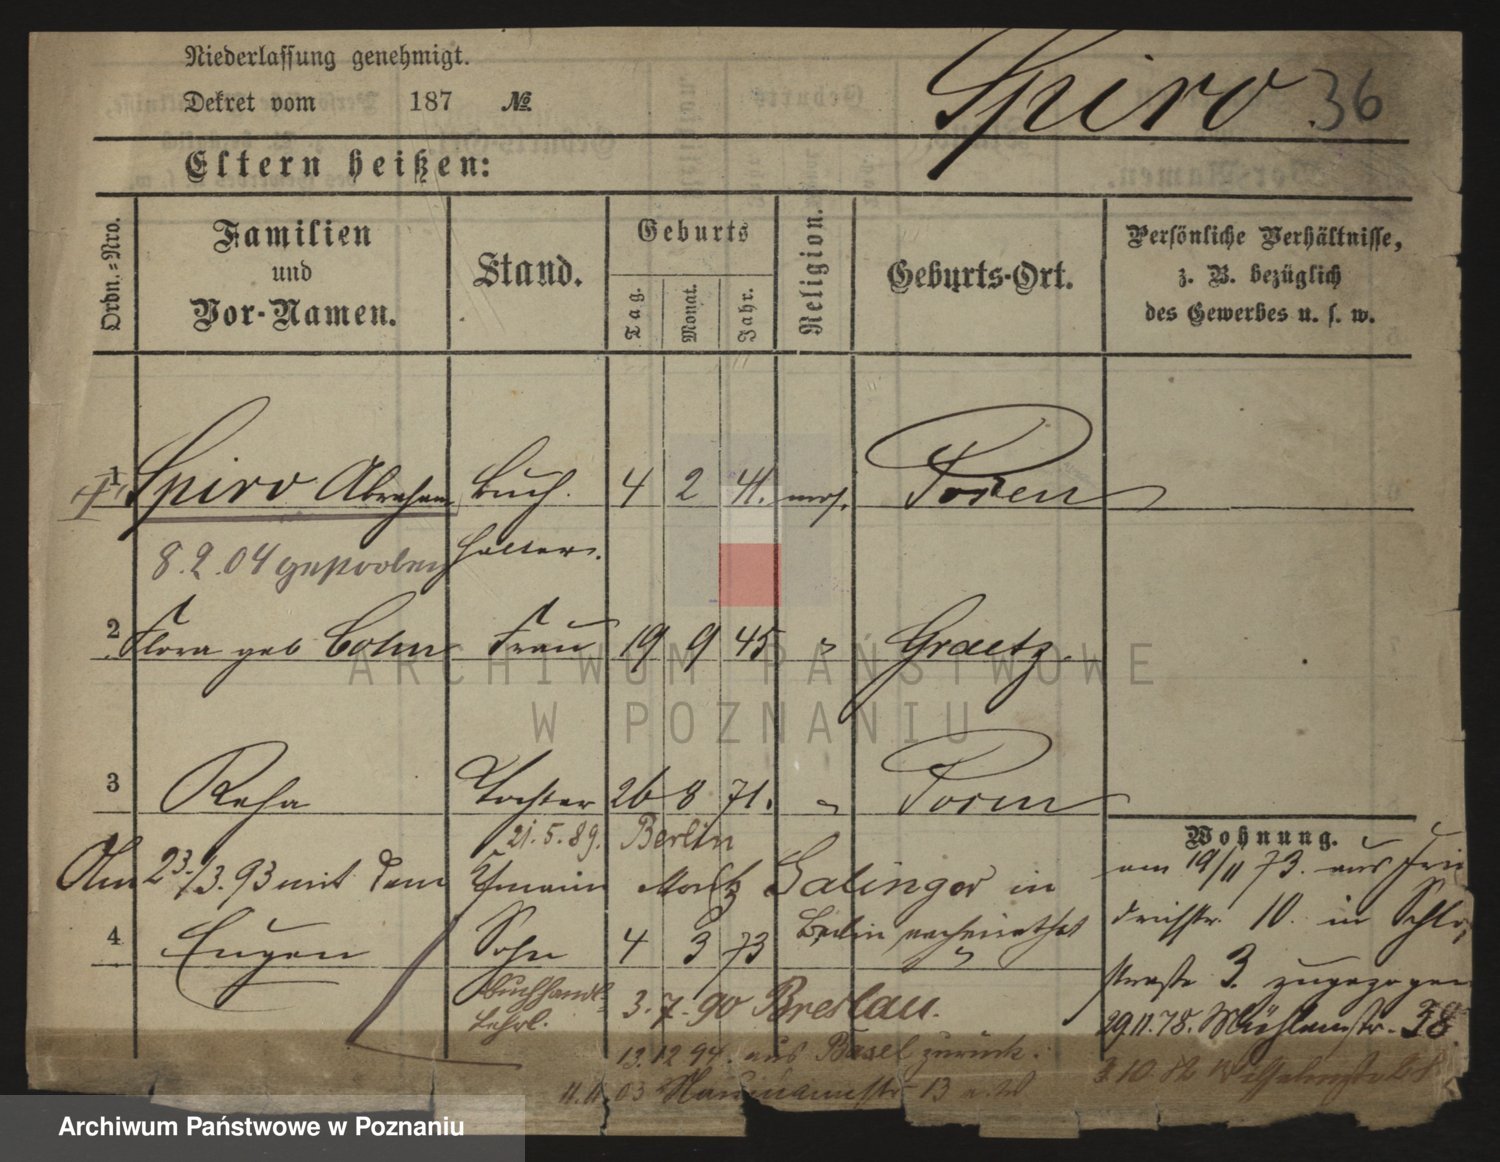 Niederlassung genehmigt.
Dekret vom 187 № Spiro 36
Eltern heißen:
Ordn.=Nro.
Familien und Vor-Namen.
Stand.
Geburts
Tag. Monat. Jahr.
Religion.
Geburts-Ort.
Persönliche Verhältnisse, z. B. bezüglich des Gewerbes u. s. w.
1 Spiro Abraham Buch. 4 2 41. mos. Posen
8.2.04 gestorben halter.
2 Flora geb Cohn Frau 19 9 45 " Graetz
3 Reha Tochter 26 8 71. " Posen
21.5.89. Berlin
Am 23./3.93 mit dem Moritz Salinger in
Berlin verheirathet
4 Eugen Sohn 4 3 73
Buchhandl.
Lehrl. 3.7.90 Breslau.
13.12 94. aus Basel zurück.
11.11.03 Naumannstr 13
Wohnung.
am 19/11 73. aus Frie
drichstr. 10. in Schlo
straße 3. zugezogen
29.11.78. Mühlenstr. 38
ARCHIWUM PAŃSTWOWE
W POZNANIU
Archiwum Państwowe w Poznaniu